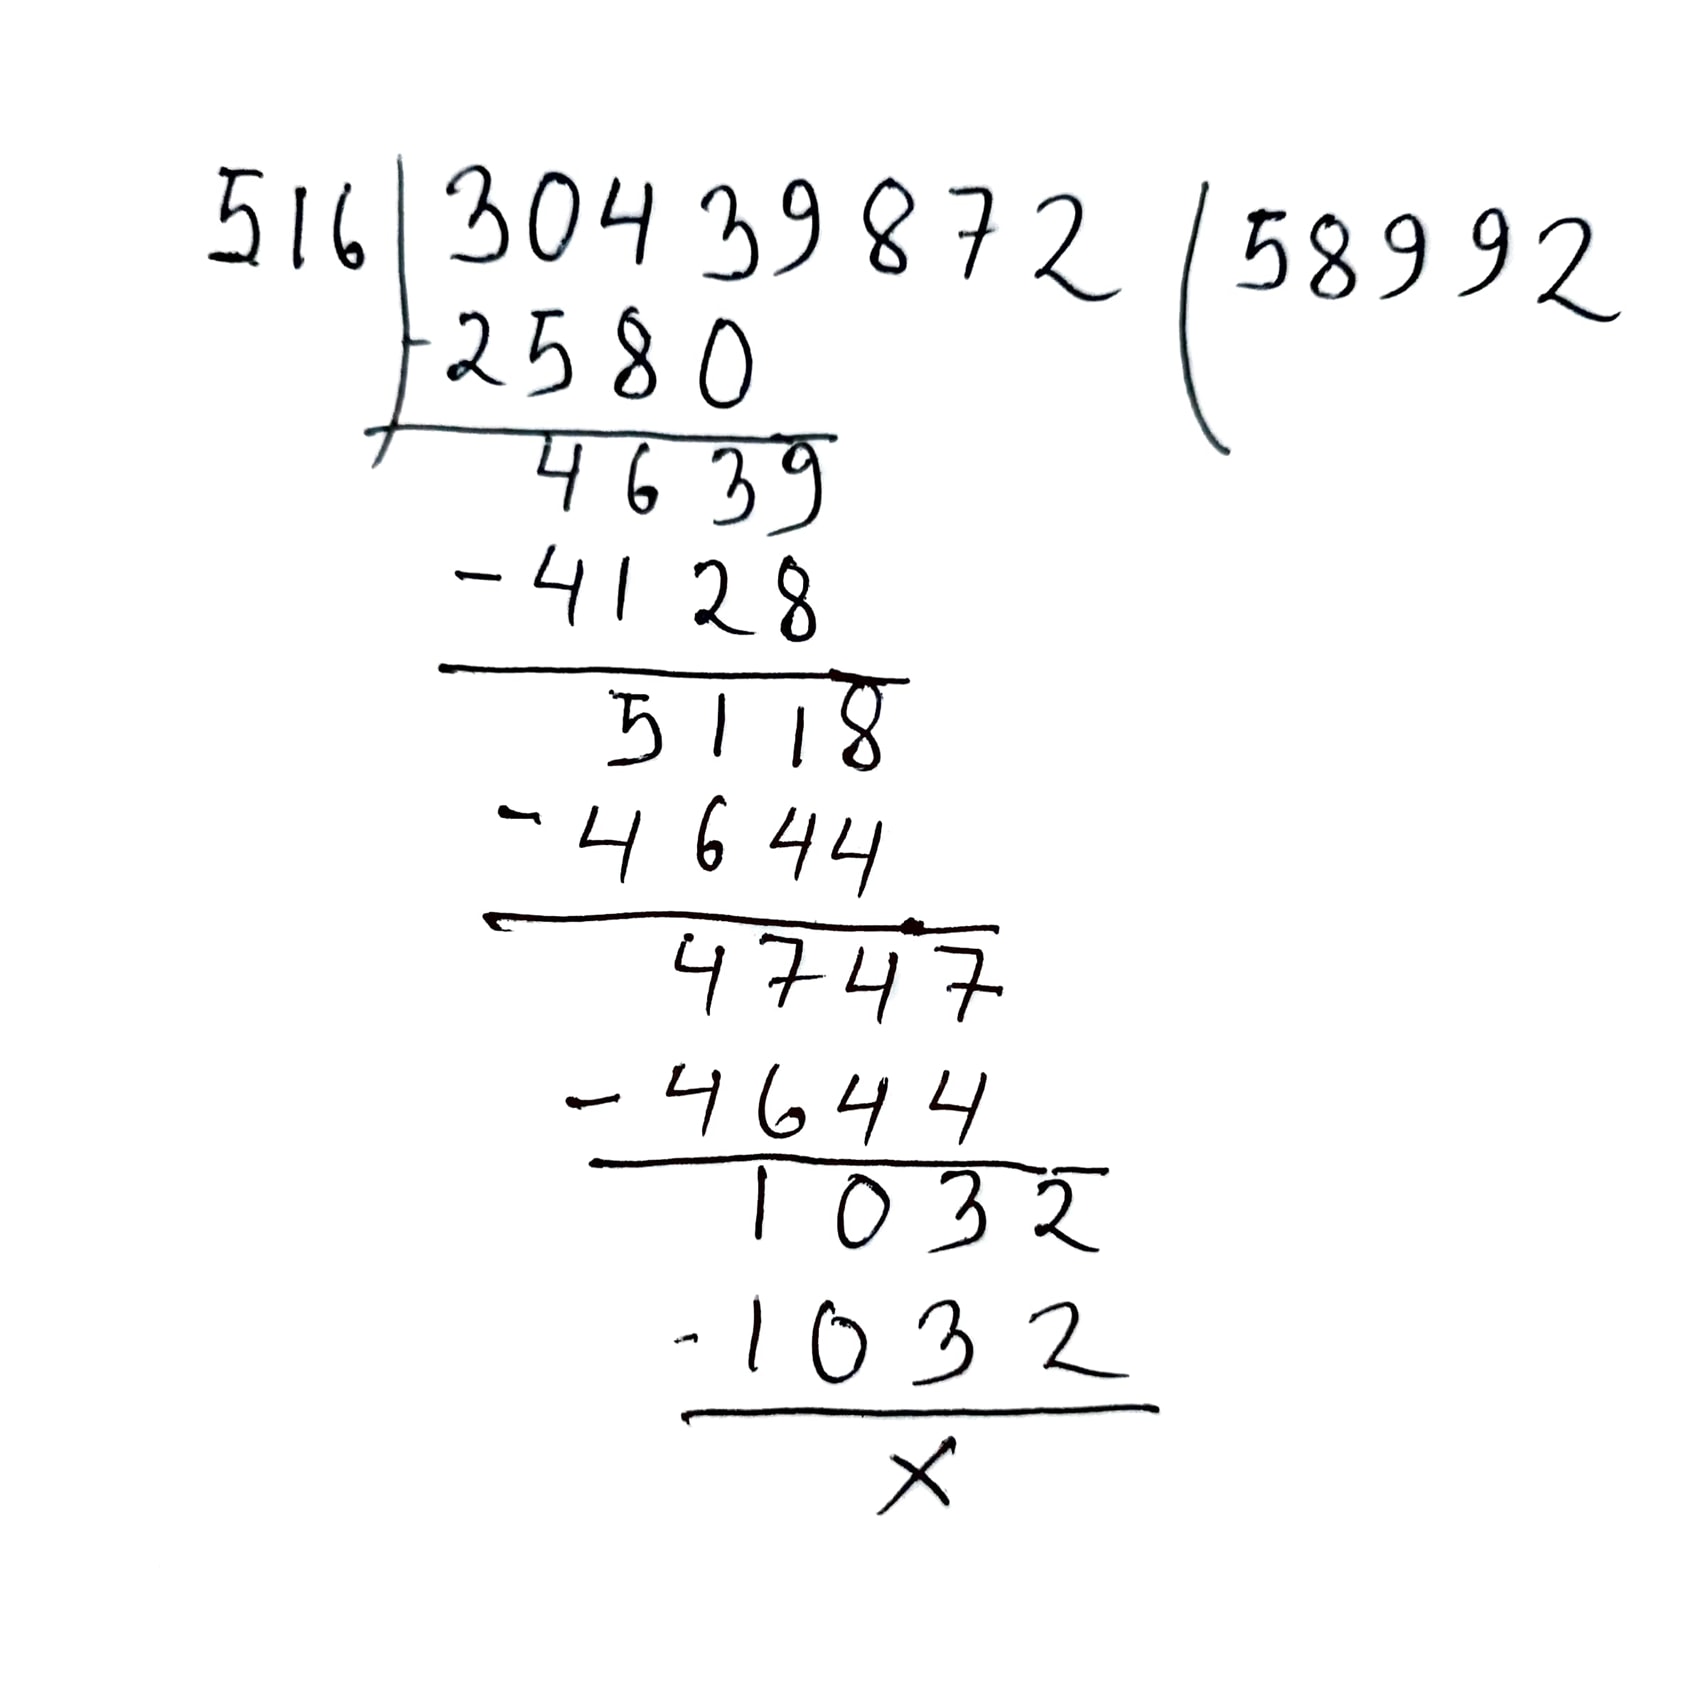 516 | 30439872 ( 58992
- 2580
4639
- 4128
5118
- 4644
4747
- 4644
1032
- 1032
x